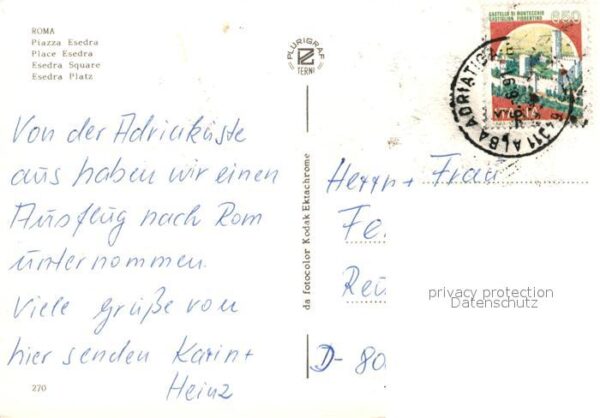 ROMA
Piazza Esedra
Place Esedra
Esedra Square
Esedra Platz
PLURIGRAF
TERNI
CASTELLO DI MONTECCHIO
CASTIGLION FIORENTINO
650
ITALIA
64311 ALBA ADRIATICA
Von der Adriaküste
aus haben wir einen
Ausflug nach Rom
unternommen.
Viele Grüße von
hier senden Karin +
Heinz
270
da fotocolor Kodak Ektachrome
Herrn + Frau
Fe
Reu
D-80
privacy protection
Datenschutz